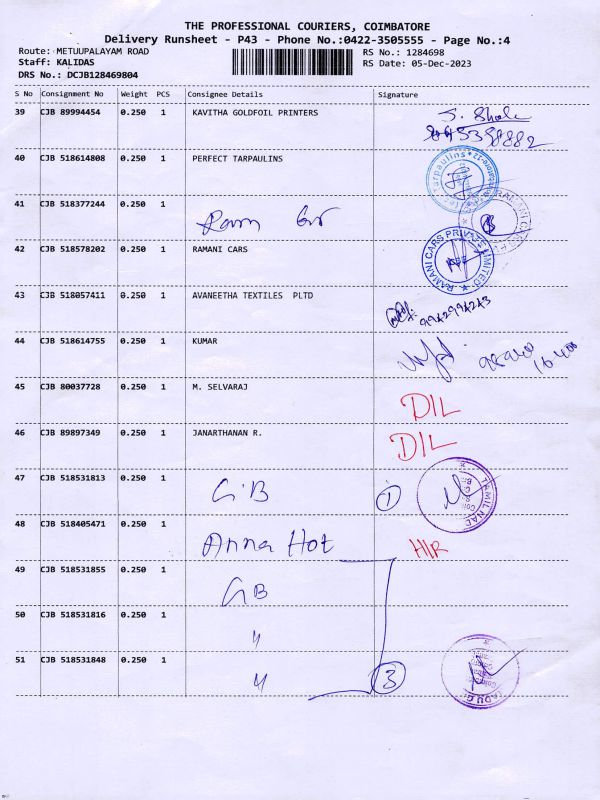 THE PROFESSIONAL COURIERS, COIMBATORE
Delivery Runsheet - P43 - Phone No.:0422-3505555 - Page No.:4
Route: METUUPALAYAM ROAD RS No.: 1284698
Staff: KALIDAS RS Date: 05-Dec-2023
DRS No.: DCJB128469804
S No Consignment No Weight PCS Consignee Details Signature
39 CJB 89994454 0.250 1 KAVITHA GOLDFOIL PRINTERS
40 CJB 518614808 0.250 1 PERFECT TARPAULINS
41 CJB 518377244 0.250 1
42 CJB 518578202 0.250 1 RAMANI CARS
RAMANI CARS PRIVATE LIMITED
43 CJB 518057411 0.250 1 AVANEETHA TEXTILES PLTD
9942994243
44 CJB 518614755 0.250 1 KUMAR
45 CJB 80037728 0.250 1 M. SELVARAJ DIL
46 CJB 89897349 0.250 1 JANARTHANAN R. DIL
47 CJB 518531813 0.250 1 GB 1 TAMIL NAD
48 CJB 518405471 0.250 1 Anna Hot HIR
49 CJB 518531855 0.250 1 GB
50 CJB 518531816 0.250 1 "
51 CJB 518531848 0.250 1 " 3